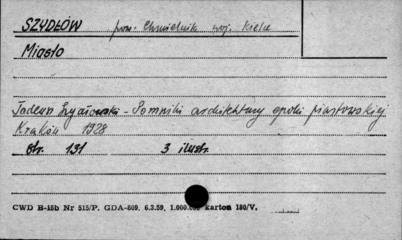 SZYDŁÓW pow. Chmielnik woj. Kielce
Miasto
Tadeusz Szydłowski - Pomniki architektury epoki piastowskiej
Kraków 1928
str. 131 3 ilustr.
CWD B-15b Nr 515/P. GDA-809. 6.3.59. 1.000.000 kartek 180/V.